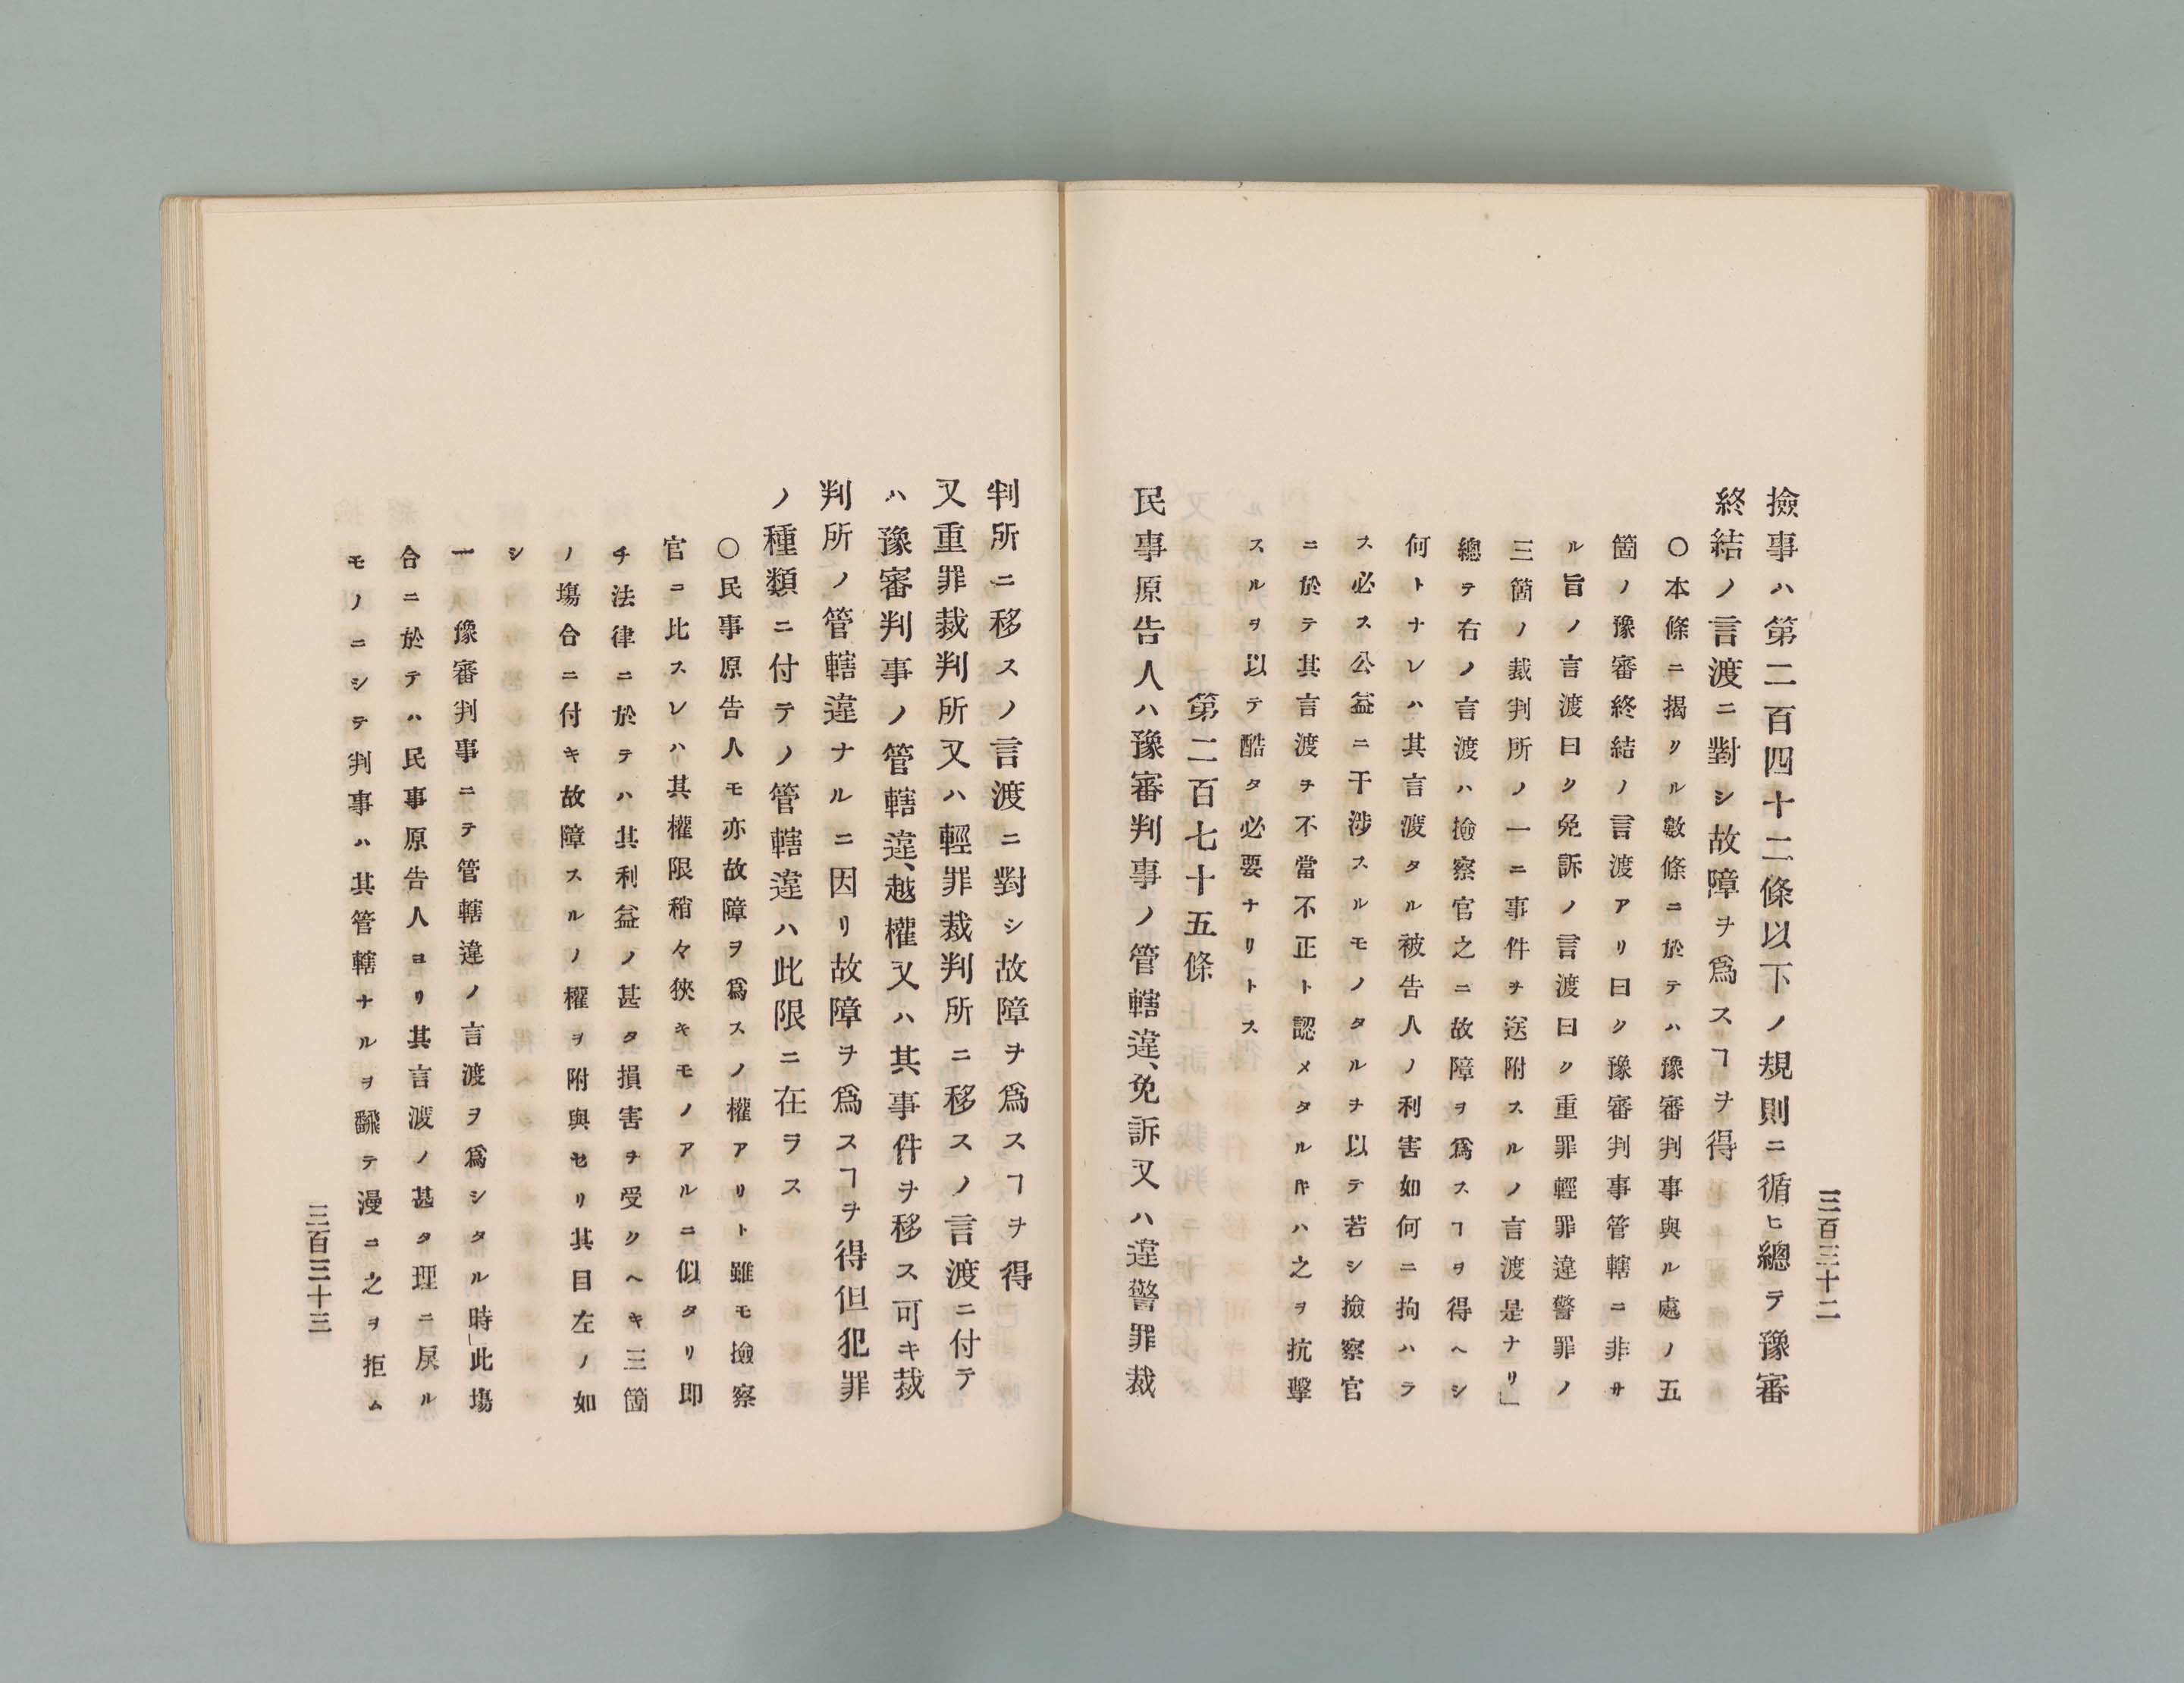 三百三十二
撿事ハ第二百四十二條以下ノ規則ニ循ヒ總テ豫審
終結ノ言渡ニ對シ故障ヲ爲スヿヲ得
〇本條ニ揭クル數條ニ於テハ豫審判事與ル處ノ五
箇ノ豫審終結ノ言渡アリ曰ク豫審判事管轄ニ非サ
ル旨ノ言渡曰ク免訴ノ言渡曰ク重罪輕罪違警罪ノ
三箇ノ裁判所ノ一ニ事件ヲ送附スルノ言渡是ナリ」
總テ右ノ言渡ハ撿察官之ニ故障ヲ爲スヿヲ得ヘシ
何トナレハ其言渡タル被告人ノ利害如何ニ拘ハラ
ス必ス公益ニ干渉スルモノタルヲ以テ若シ撿察官
ニ於テ其言渡ヲ不當不正ト認メタルㆍハ之ヲ抗擊
スルヲ以テ酷タ必要ナリトス
第二百七十五條
民事原告人ハ豫審判事ノ管轄違、免訴又ハ違警罪裁
判所ニ移スノ言渡ニ對シ故障ヲ爲スヿヲ得
又重罪裁判所又ハ輕罪裁判所ニ移スノ言渡ニ付テ
ハ豫審判事ノ管轄違、越權又ハ其事件ヲ移ス可キ裁
判所ノ管轄違ナルニ因リ故障ヲ爲スヿヲ得但犯罪
ノ種類ニ付テノ管轄違ハ此限ニ在ラス
〇民事原告人モ亦故障ヲ爲スノ權アリト雖モ撿察
官ニ比スレハ其權限稍々狹キモノアルニ似タリ即
チ法律ニ於テハ其利益ノ甚タ損害ヲ受クヘキ三箇
ノ塲合ニ付キ故障スルノ權ヲ附與セリ其目左ノ如
シ
一 豫審判事ニテ管轄違ノ言渡ヲ爲シタル時」此塲
合ニ於テハ民事原告人ヨリ其言渡ノ甚タ理ニ戾ル
モノニシテ判事ハ其管轄ナルヲ飜テ漫ニ之ヲ拒ム
三百三十三